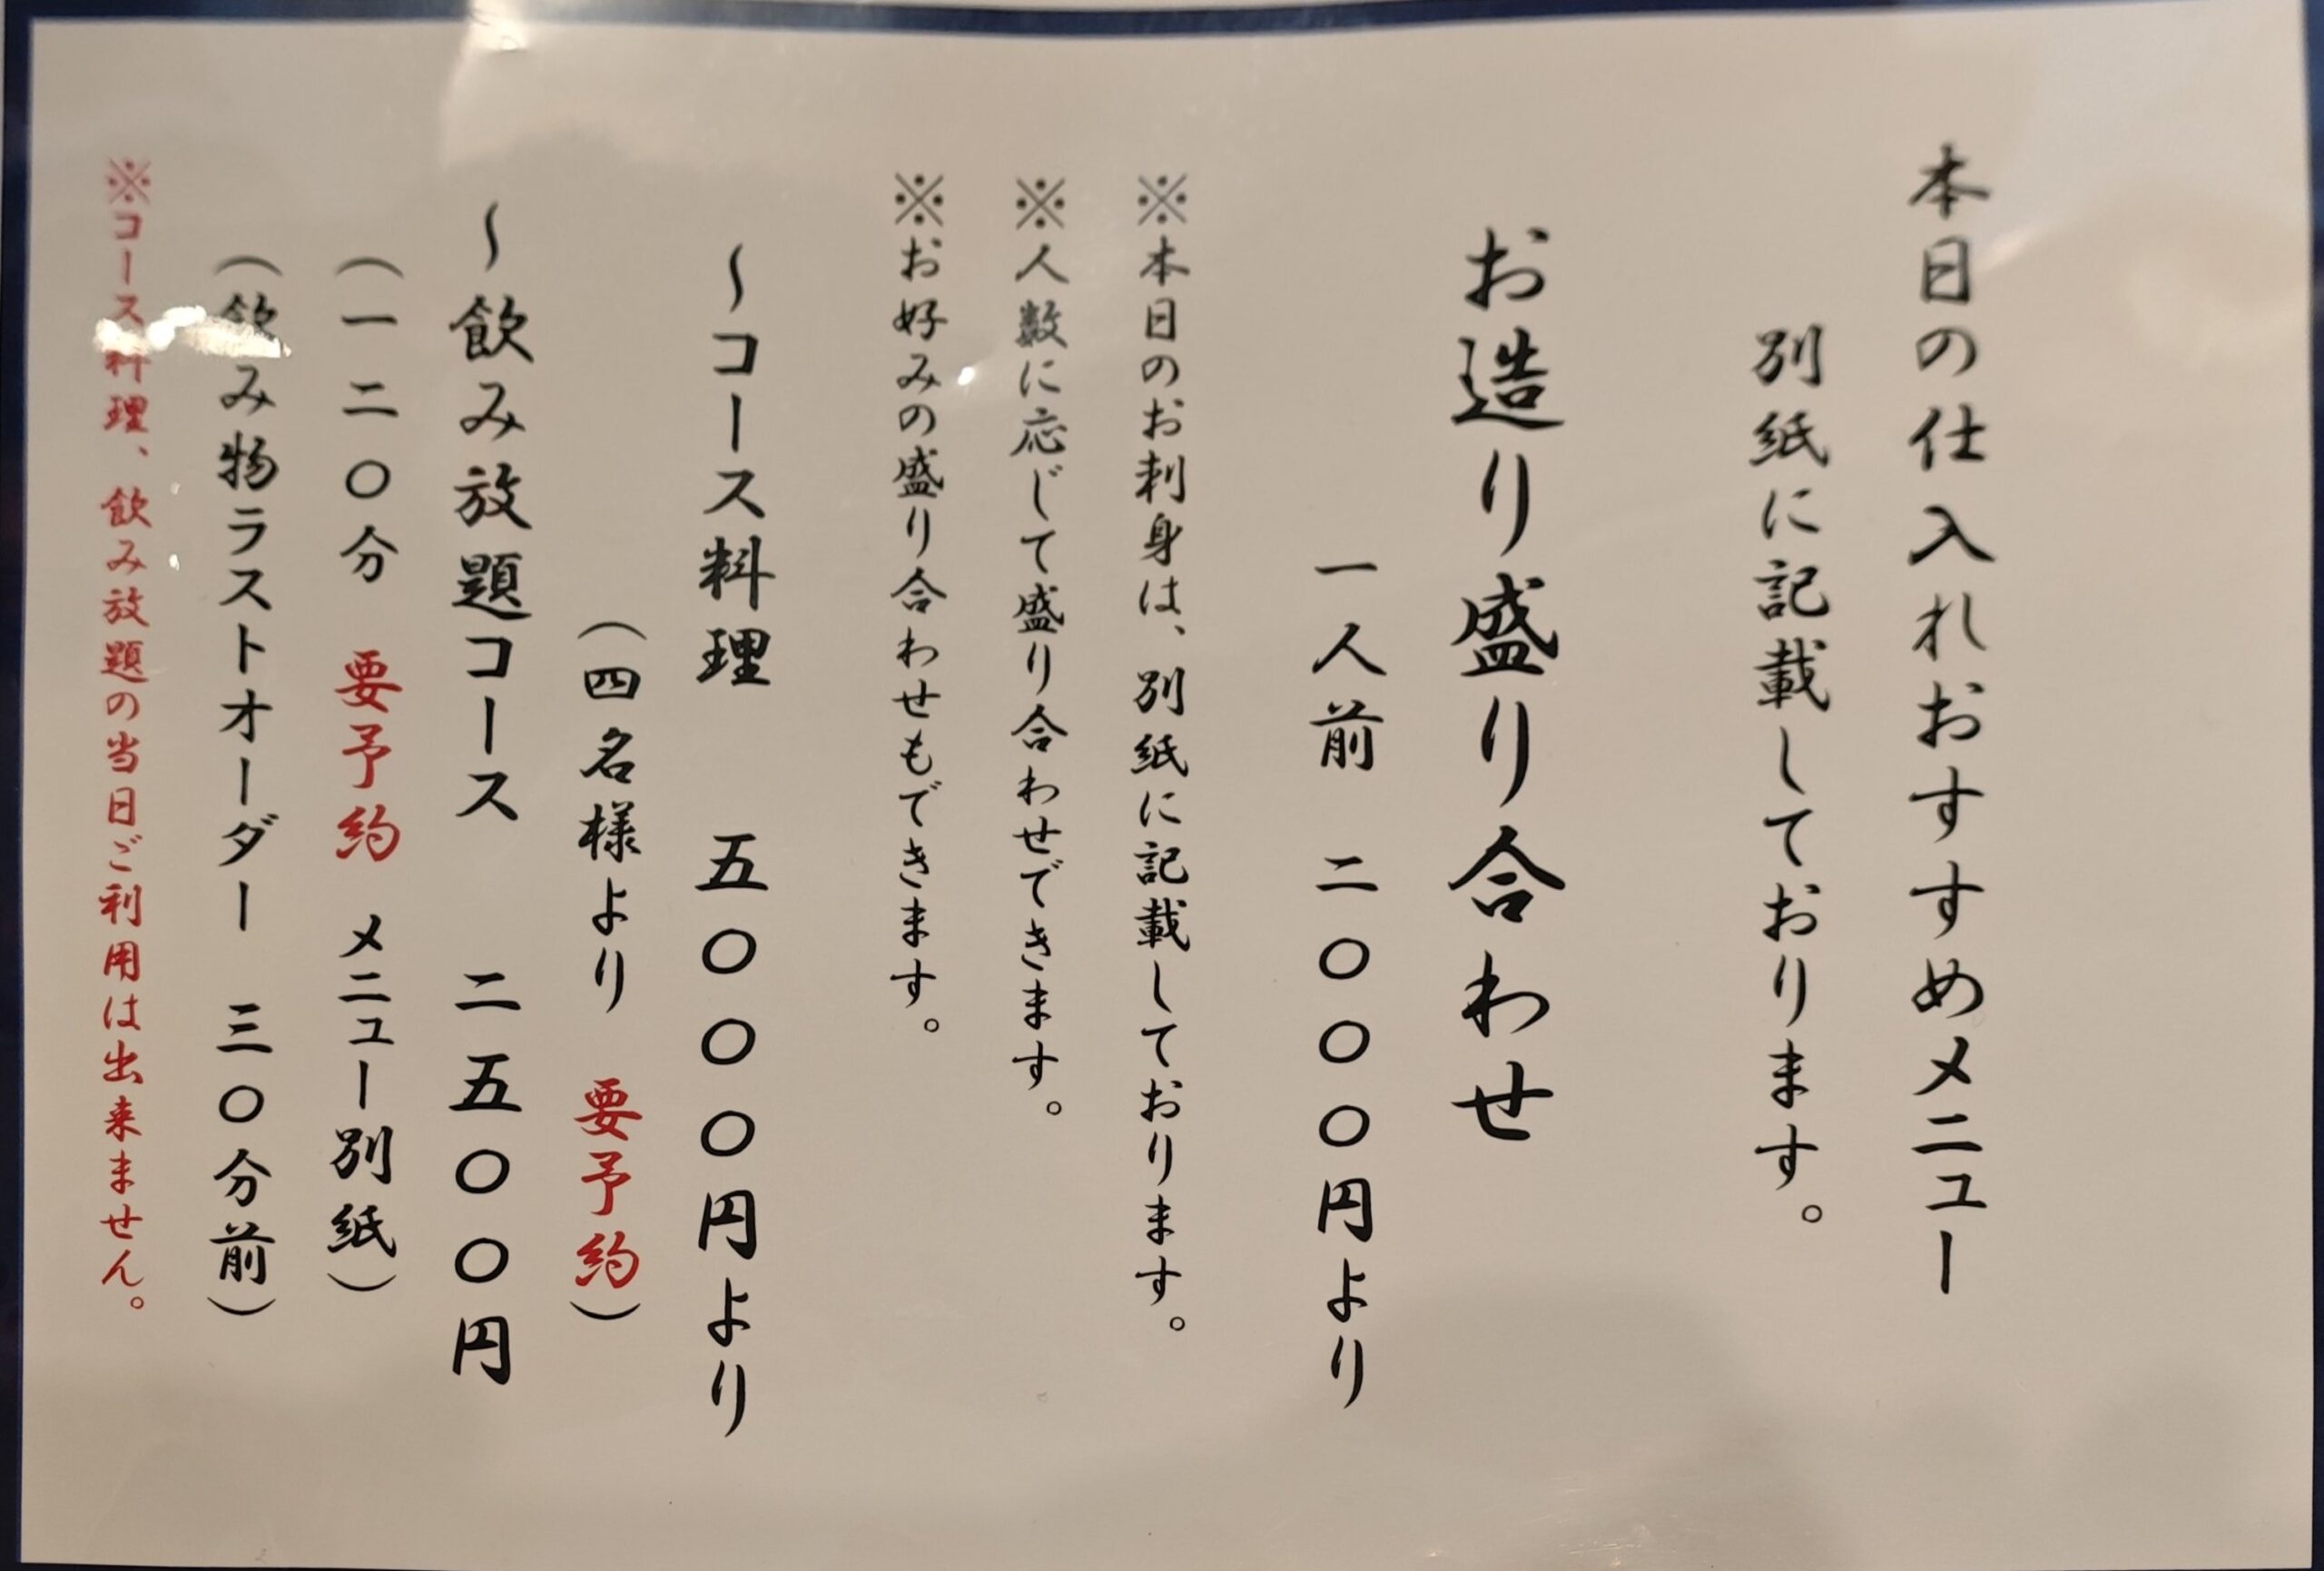 本日の仕入れおすすめメニュー
別紙に記載しております。
お造り盛り合わせ
一人前 二〇〇〇円より
※本日のお刺身は、別紙に記載しております。
※人数に応じて盛り合わせできます。
※お好みの盛り合わせもできます。
～コース料理 五〇〇〇円より
（四名様より 要予約）
～飲み放題コース 二五〇〇円
（一二〇分 要予約 メニュー別紙）
（飲み物ラストオーダー 三〇分前）
※コース料理、飲み放題の当日ご利用は出来ません。